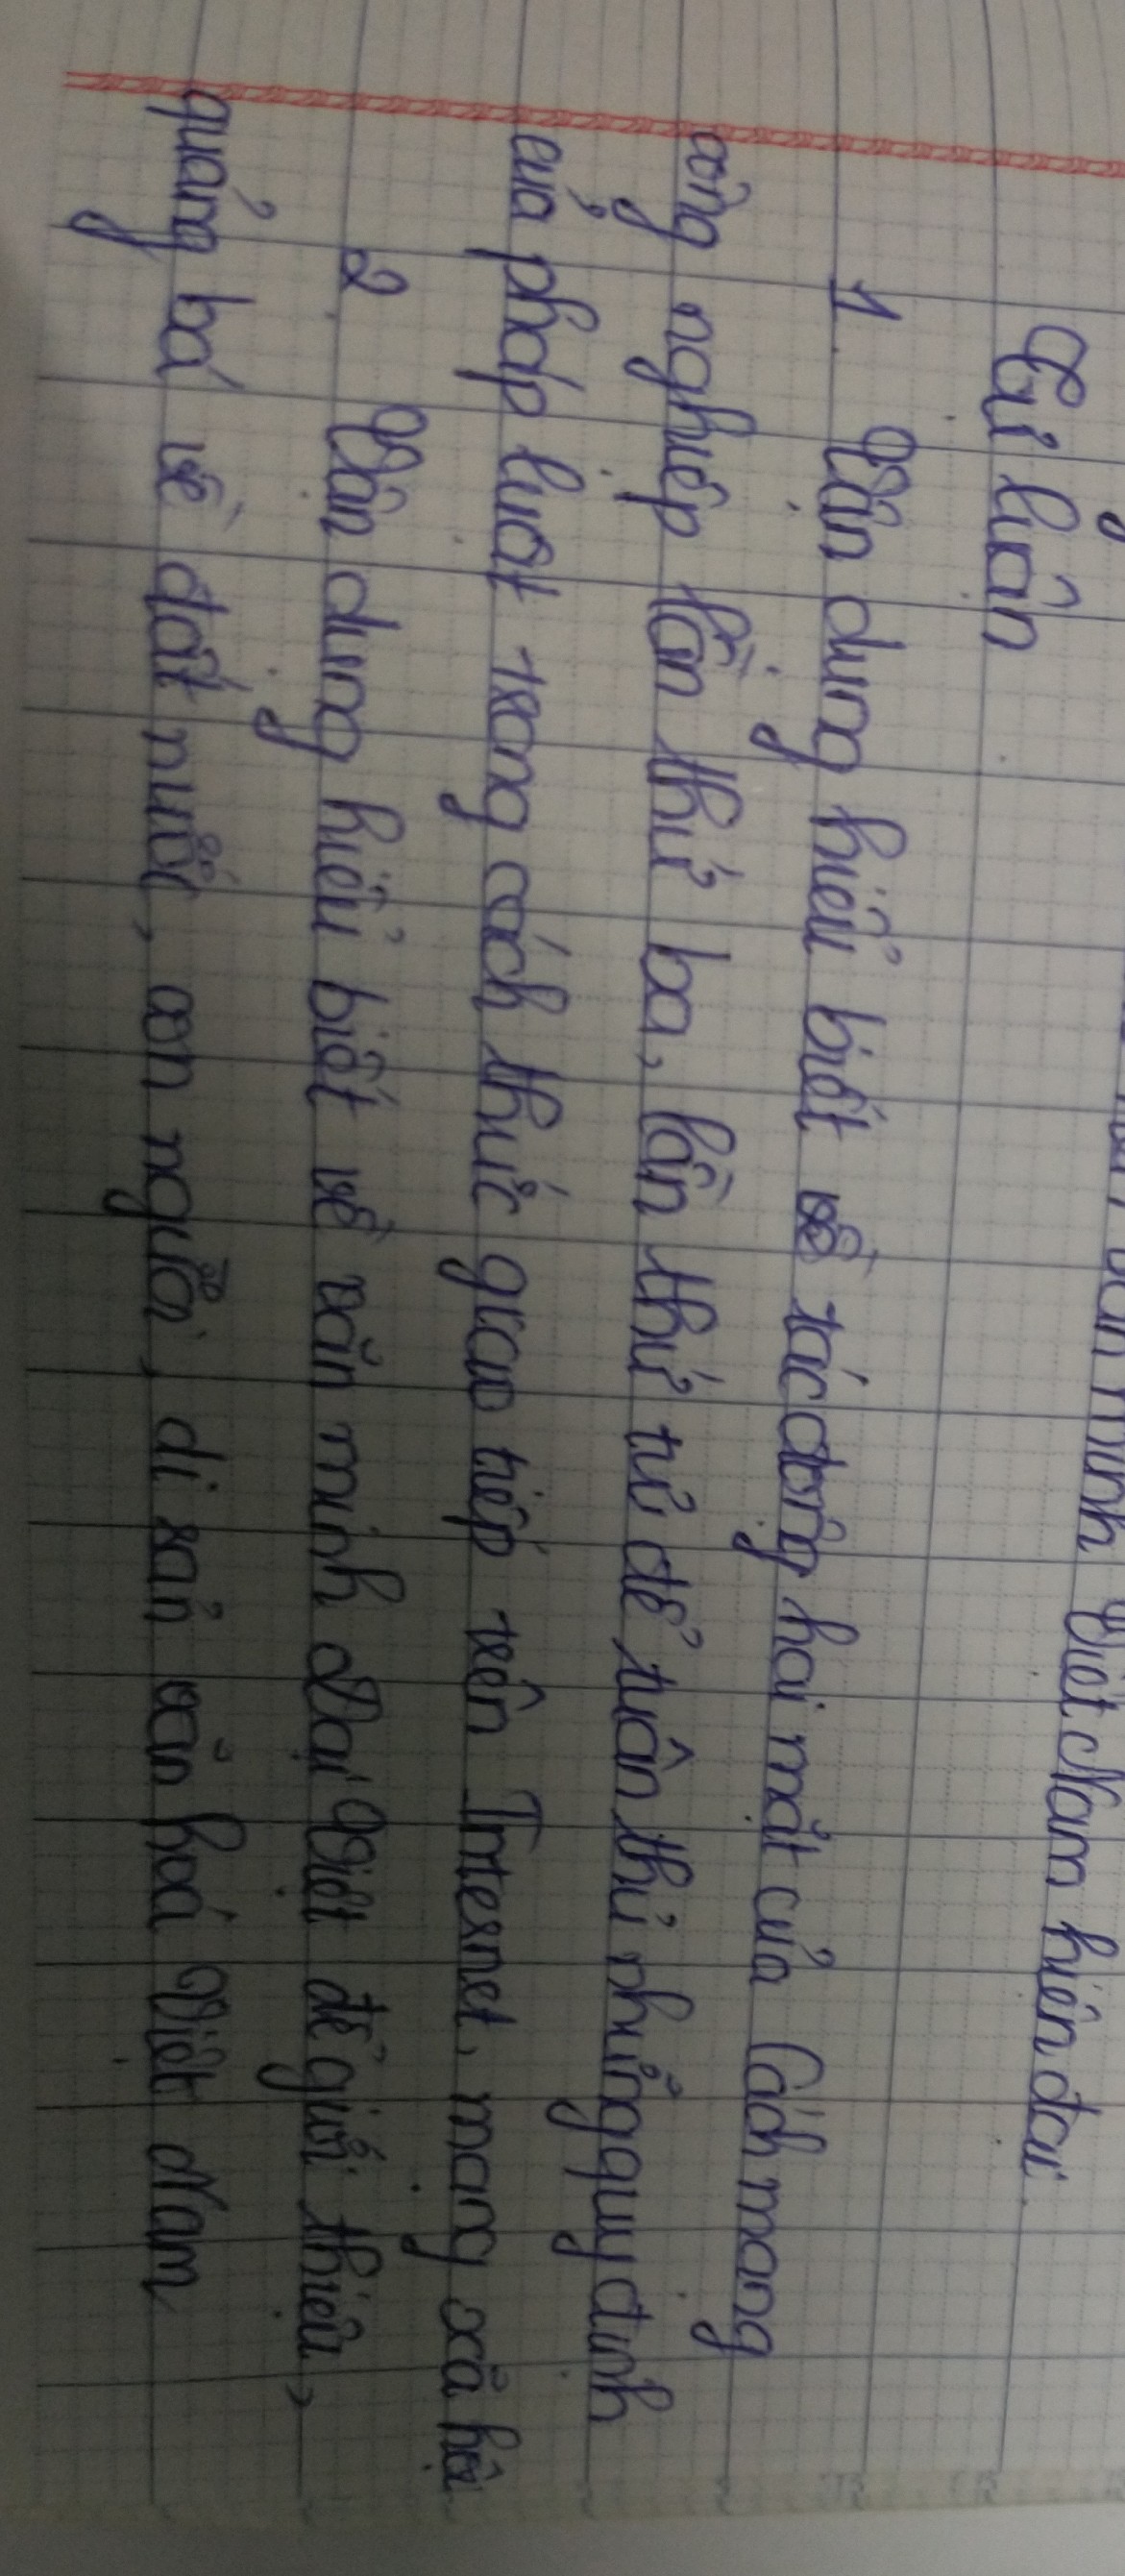 Việt Nam hiện đại.
Tự luận
1. Vận dụng hiểu biết về tác động hai mặt của Cách mạng
công nghiệp lần thứ ba, lần thứ tư để tuân thủ những quy định
của pháp luật trong cách thức giao tiếp trên Internet, mạng xã hội
2. Vận dụng hiểu biết về văn minh Đại Việt để giới thiệu,
quảng bá về đất nước, con người, di sản văn hoá Việt Nam